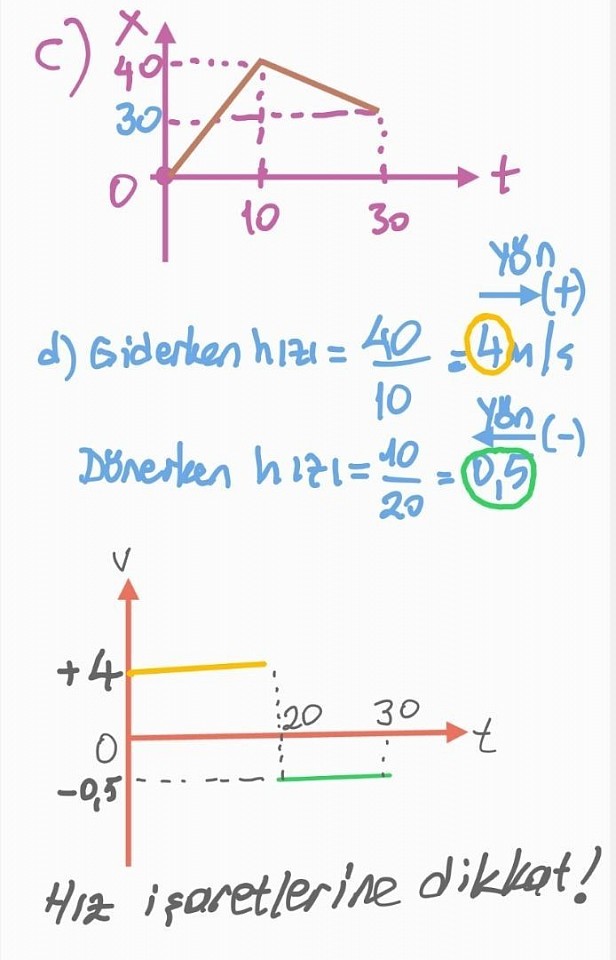 c) X
40
30
0
10
30
t
yön
→(+)
d) Giderken hızı = 40/10 = 4m/s
yön
←(-)
Dönerken hızı = 10/20 = 0,5
v
+4
20
30
0
t
-0,5
Hız işaretlerine dikkat!